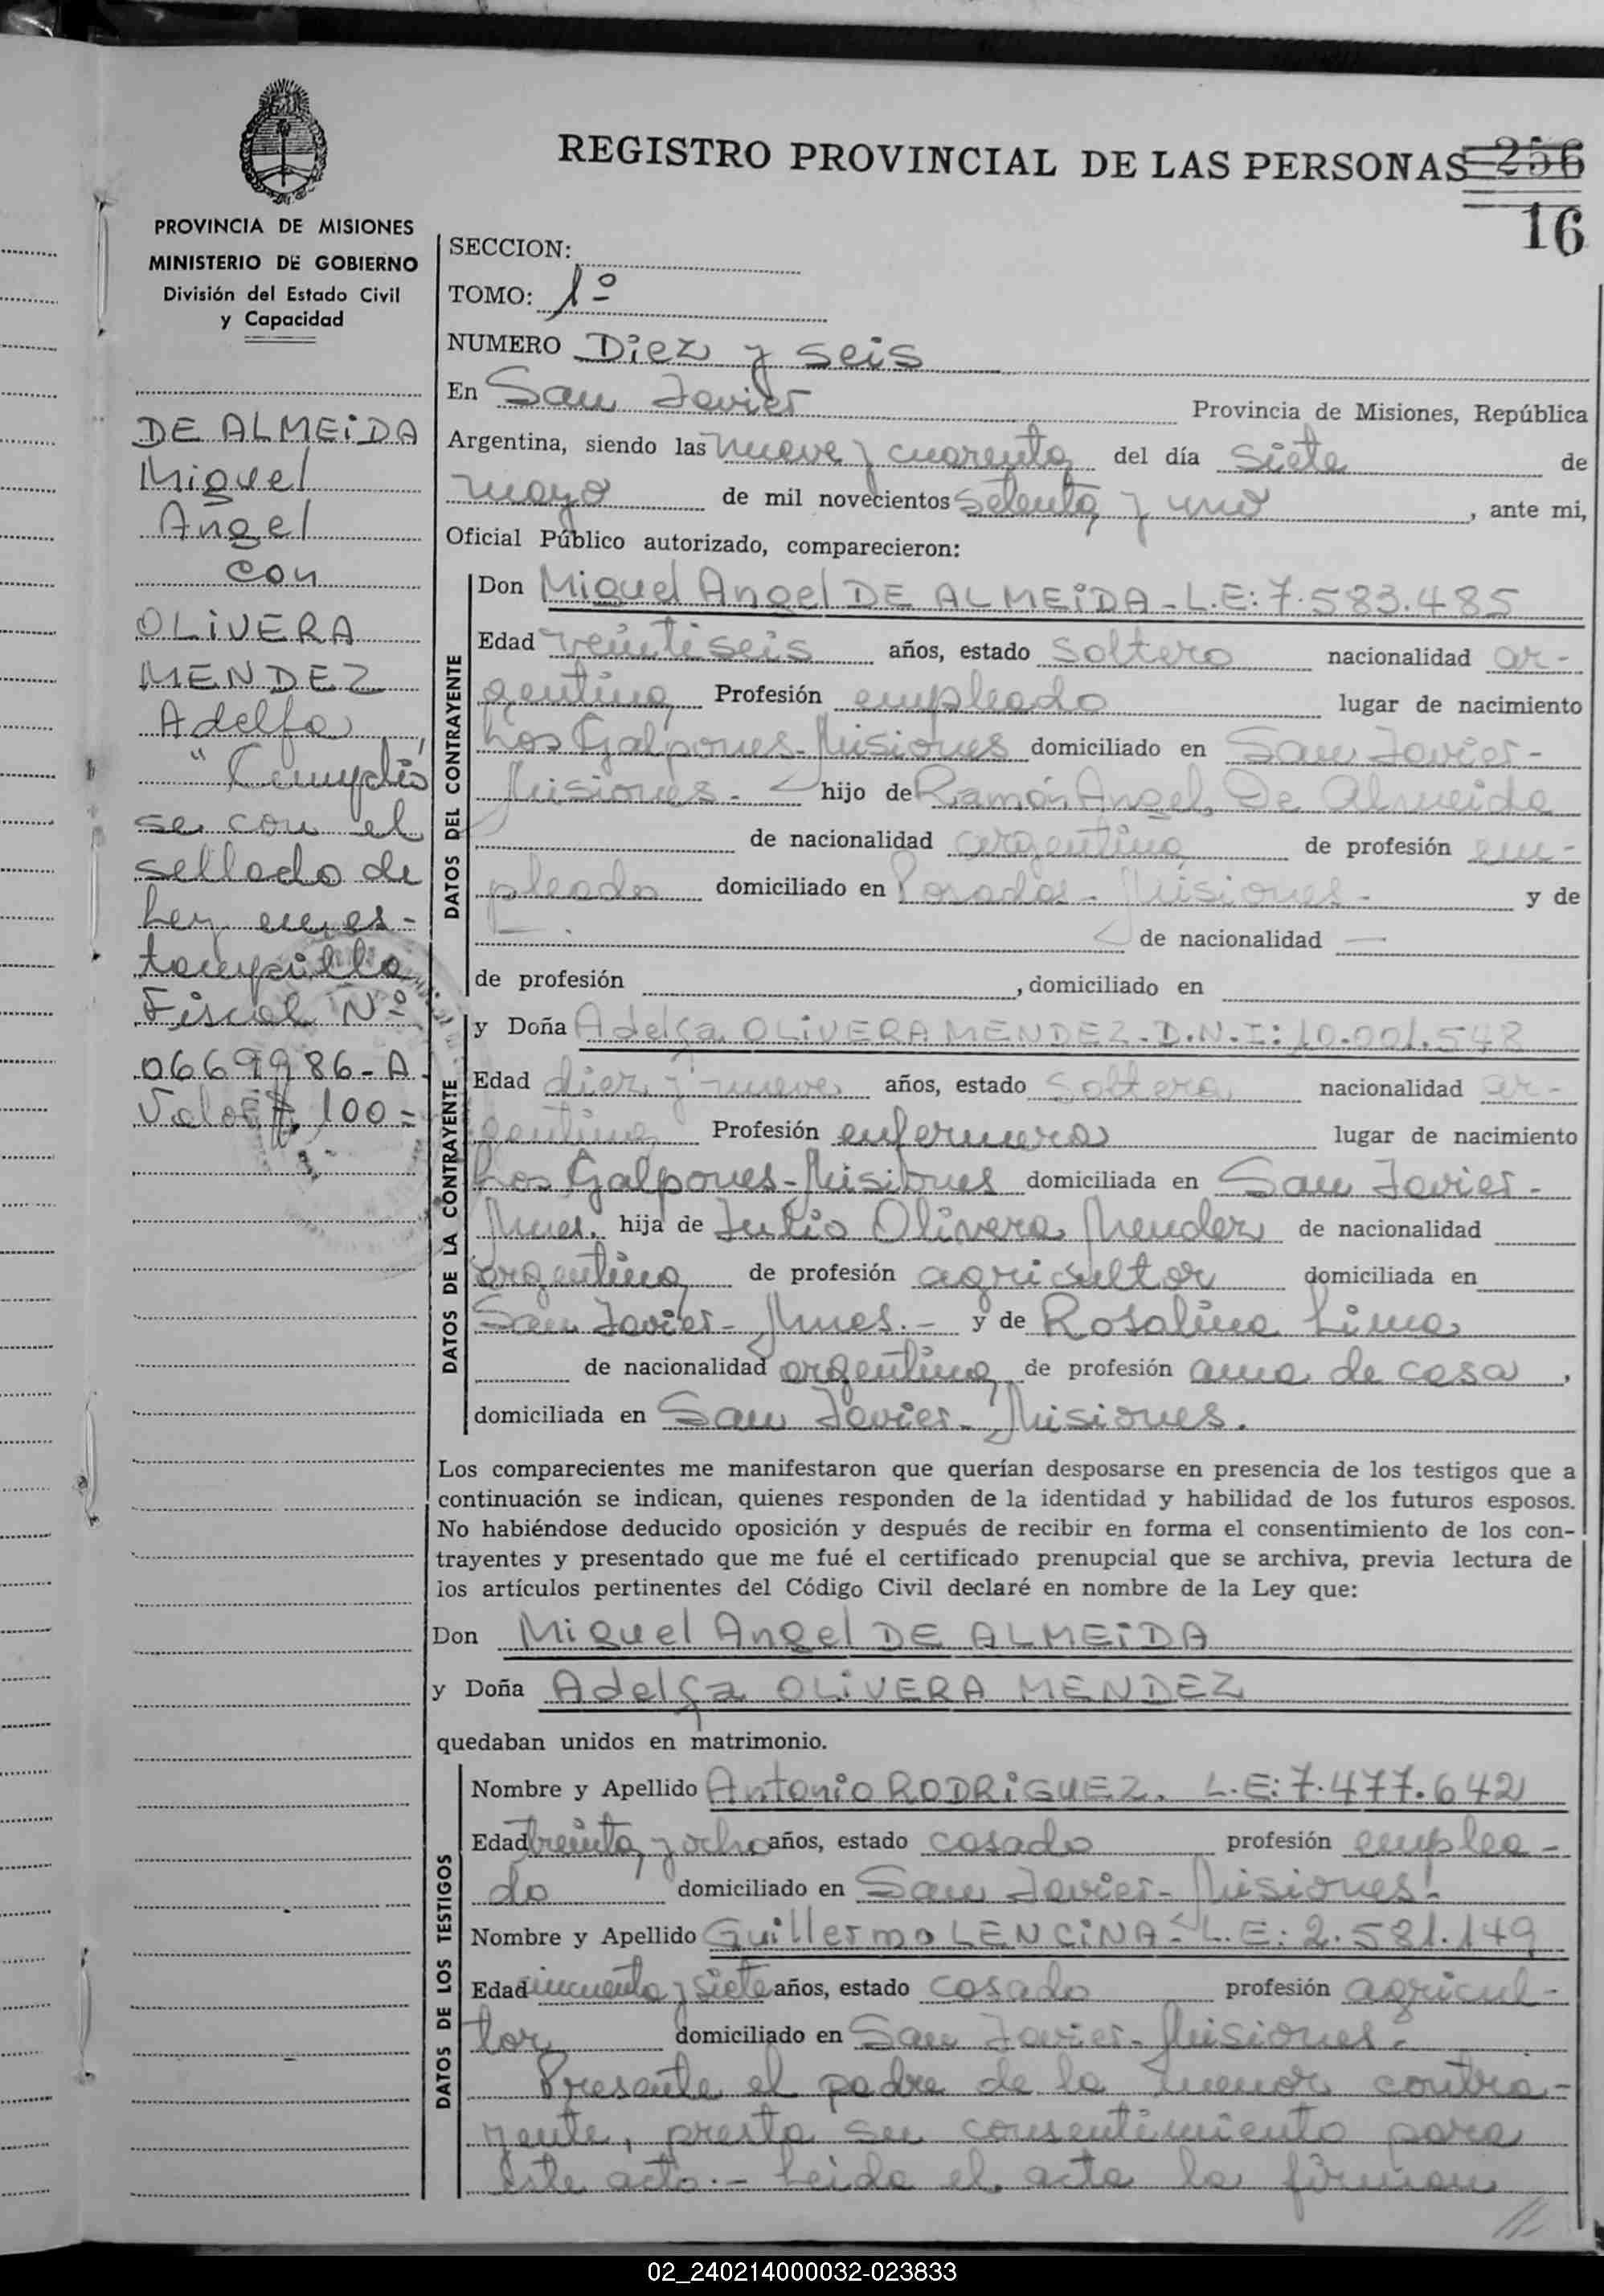 REGISTRO PROVINCIAL DE LAS PERSONAS 256
16
PROVINCIA DE MISIONES
MINISTERIO DE GOBIERNO
División del Estado Civil
y Capacidad
DE ALMEIDA
Miguel
Angel
con
OLIVERA
MENDEZ
Adelfa
" Cumplió
se con el
sellado de
Ley en es-
tampilla
Fiscal Nº
0669986-A.
Valor $ 100=
SECCION:
TOMO: 1º
NUMERO Diez y seis
En San Javier Provincia de Misiones, República
Argentina, siendo las nueve y cuarenta del día siete de
mayo de mil novecientos setenta y uno, ante mi,
Oficial Público autorizado, comparecieron:
DATOS DEL CONTRAYENTE
Don Miguel Angel DE ALMEIDA - L.E: 7.583.485
Edad veintiseis años, estado soltero nacionalidad ar-
gentina Profesión empleado lugar de nacimiento
Los Galpones-Misiones domiciliado en San Javier-
Misiones.- hijo de Ramón Angel De Almeida
de nacionalidad argentina de profesión em-
pleado domiciliado en Posadas - Misiones - y de
de nacionalidad
de profesión , domiciliado en
DATOS DE LA CONTRAYENTE
y Doña Adelfa OLIVERA MENDEZ. D.N.I: 10.001.548
Edad diez y nueve años, estado soltera nacionalidad ar-
gentina Profesión enfermera lugar de nacimiento
Los Galpones-Misiones domiciliada en San Javier-
Mnes. hija de Julio Olivera Mendez de nacionalidad
argentina de profesión agricultor domiciliada en
San Javier- Mnes.- y de Rosalina Lima
de nacionalidad argentina de profesión ama de casa,
domiciliada en San Javier- Misiones.
Los comparecientes me manifestaron que querían desposarse en presencia de los testigos que a
continuación se indican, quienes responden de la identidad y habilidad de los futuros esposos.
No habiéndose deducido oposición y después de recibir en forma el consentimiento de los con-
trayentes y presentado que me fué el certificado prenupcial que se archiva, previa lectura de
los artículos pertinentes del Código Civil declaré en nombre de la Ley que:
Don Miguel Angel DE ALMEIDA
y Doña Adelfa OLIVERA MENDEZ
quedaban unidos en matrimonio.
DATOS DE LOS TESTIGOS
Nombre y Apellido Antonio RODRIGUEZ. L.E: 7.477.642
Edad treinta y ocho años, estado casado profesión emplea-
do domiciliado en San Javier- Misiones.-
Nombre y Apellido Guillermo LENCINA - L.E: 2.581.149
Edad cincuenta y siete años, estado casado profesión agricul-
tor domiciliado en San Javier- Misiones.-
Presente el padre de la menor contra-
yente, presta su consentimiento para
este acto.- Leida el acta la firman
//
02_240214000032-023833